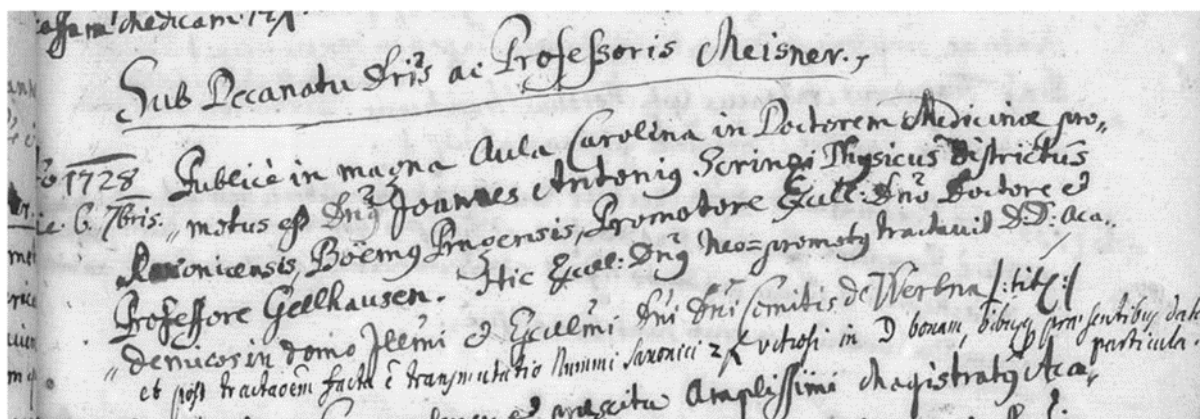 Medicam.
Sub Decanatu Dñis ac Professoris Meisner.
1728 Publicè in magna Aula Carolina in Doctorem Medicinæ pro„
6. 7bris. „ motus est Dñus Joannes Antonius Scrinci Physicus Districtus
Boëmus Pragensis, Promotore Excell: Dño Doctore et
Professore Gelhausen. Hic Excell: Dñus Neo=promotus tractavit D.D: Aca„
„ demicos in domo Illmi et Excellmi Dñi Dñi Comitis de Werbna /: tit: /
et post tractaoem facta ẽ transmutatio Nummi in bonam, præsentibus
particula.
Amplissimi Magistratus Aca„